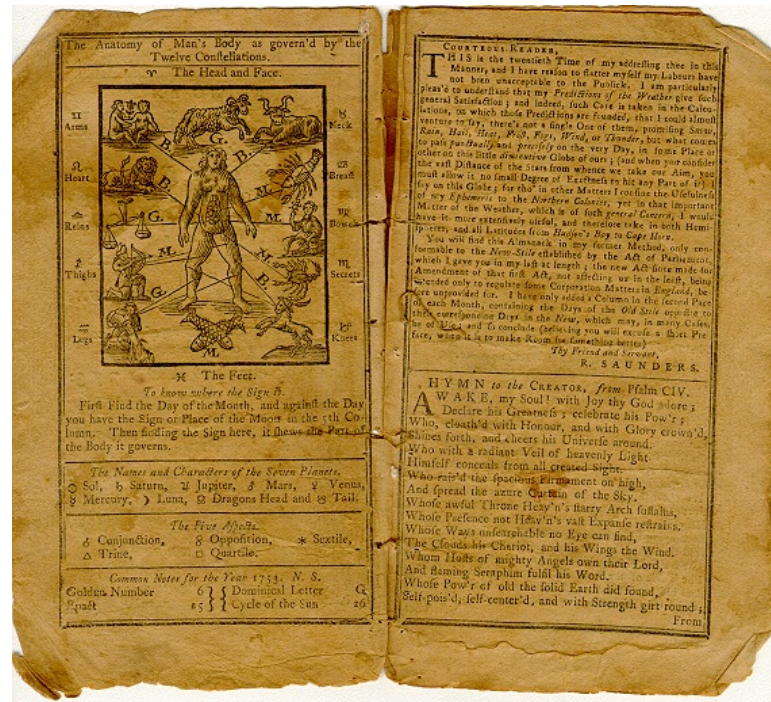 The Anatomy of Man's Body as govern'd by the
Twelve Conſtellations.
♈ The Head and Face.
♊
Arms
♉
Neck
♌
Heart
♋
Breaſt
♎
Reins
♍
Bowels
♐
Thighs
♏
Secrets
♒
Legs
♑
Knees
G.
B.
B.
B.
M.
G.
M.
M.
B.
G.
M.
♓ The Feet.
To know where the Sign is.
Firſt Find the Day of the Month, and againſt the Day
you have the Sign or Place of the Moon in the 5th Co-
lumn. Then finding the Sign here, it ſhews the Part of
the Body it governs.
The Names and Characters of the Seven Planets.
☉ Sol, ♄ Saturn, ♃ Jupiter, ♂ Mars, ♀ Venus,
☿ Mercury, ☽ Luna, ☊ Dragons Head and ☋ Tail.
The Five Aſpects.
☌ Conjunction, ☍ Oppoſition, ⚹ Sextile,
△ Trine, □ Quartile.
Common Notes for the Year 1753. N. S.
Golden Number 6 } { Dominical Letter G
Epact 25 } { Cycle of the Sun 26
COURTEOUS READER,
THIS is the twentieth Time of my addreſſing thee in this
Manner, and I have reaſon to flatter myſelf my Labours have
not been unacceptable to the Publick. I am particularly
pleas'd to underſtand that my Predictions of the Weather give ſuch
general Satisfaction; and indeed, ſuch Care is taken in the Calcu-
lations, on which thoſe Predictions are founded, that I could almoſt
venture to ſay, there's not a ſingle One of them, promiſing Snow,
Rain, Hail, Heat, Froſt, Fogs, Wind, or Thunder, but what comes
to paſs punctually and preciſely on the very Day, in ſome Place or
other on this little diminutive Globe of ours; (and when you conſider
the vaſt Diſtance of the Stars from whence we take our Aim, you
muſt allow it no ſmall Degree of Exactneſs to hit any Part of it) I
ſay on this Globe; for tho' in other Matters I confine the Uſefulneſs
of my Ephemeris to the Northern Colonies, yet in that important
Matter of the Weather, which is of ſuch general Concern, I would
have it more extenſively uſeful, and therefore take in both Hemi-
ſpheres, and all Latitudes from Hudſon's Bay to Cape Horn.
You will find this Almanack in my former Method, only con-
formable to the New-Stile eſtabliſhed by the Act of Parliament,
which I gave you in my laſt at length; the new Act ſince made for
Amendment of that firſt Act, not affecting us in the leaſt, being
intended only to regulate ſome Corporation Matters in England, be-
fore unprovided for. I have only added a Column in the ſecond Page
of each Month, containing the Days of the Old Stile oppoſite to
their correſponding Days in the New, which may, in many Caſes,
be of Uſe; and ſo conclude (believing you will excuſe a ſhort Pre-
face, when it is to make Room for ſomething better)
Thy Friend and Servant,
R. SAUNDERS.
HYMN to the CREATOR, from Pſalm CIV.
AWAKE, my Soul! with Joy thy God adore;
Declare his Greatneſs; celebrate his Pow'r;
Who, cloath'd with Honour, and with Glory crown'd,
Shines forth, and cheers his Univerſe around.
Who with a radiant Veil of heavenly Light
Himſelf conceals from all created Sight.
Who rais'd the ſpacious Firmament on high,
And ſpread the azure Curtain of the Sky.
Whoſe awful Throne Heav'n's ſtarry Arch ſuſtains,
Whoſe Preſence not Heav'n's vaſt Expanſe reſtrains.
Whoſe Ways unſearchable no Eye can find,
The Clouds his Chariot, and his Wings the Wind.
Whom Hoſts of mighty Angels own their Lord,
And flaming Seraphim fulfil his Word.
Whoſe Pow'r of old the ſolid Earth did found,
Self-pois'd, ſelf-center'd, and with Strength girt round;
From